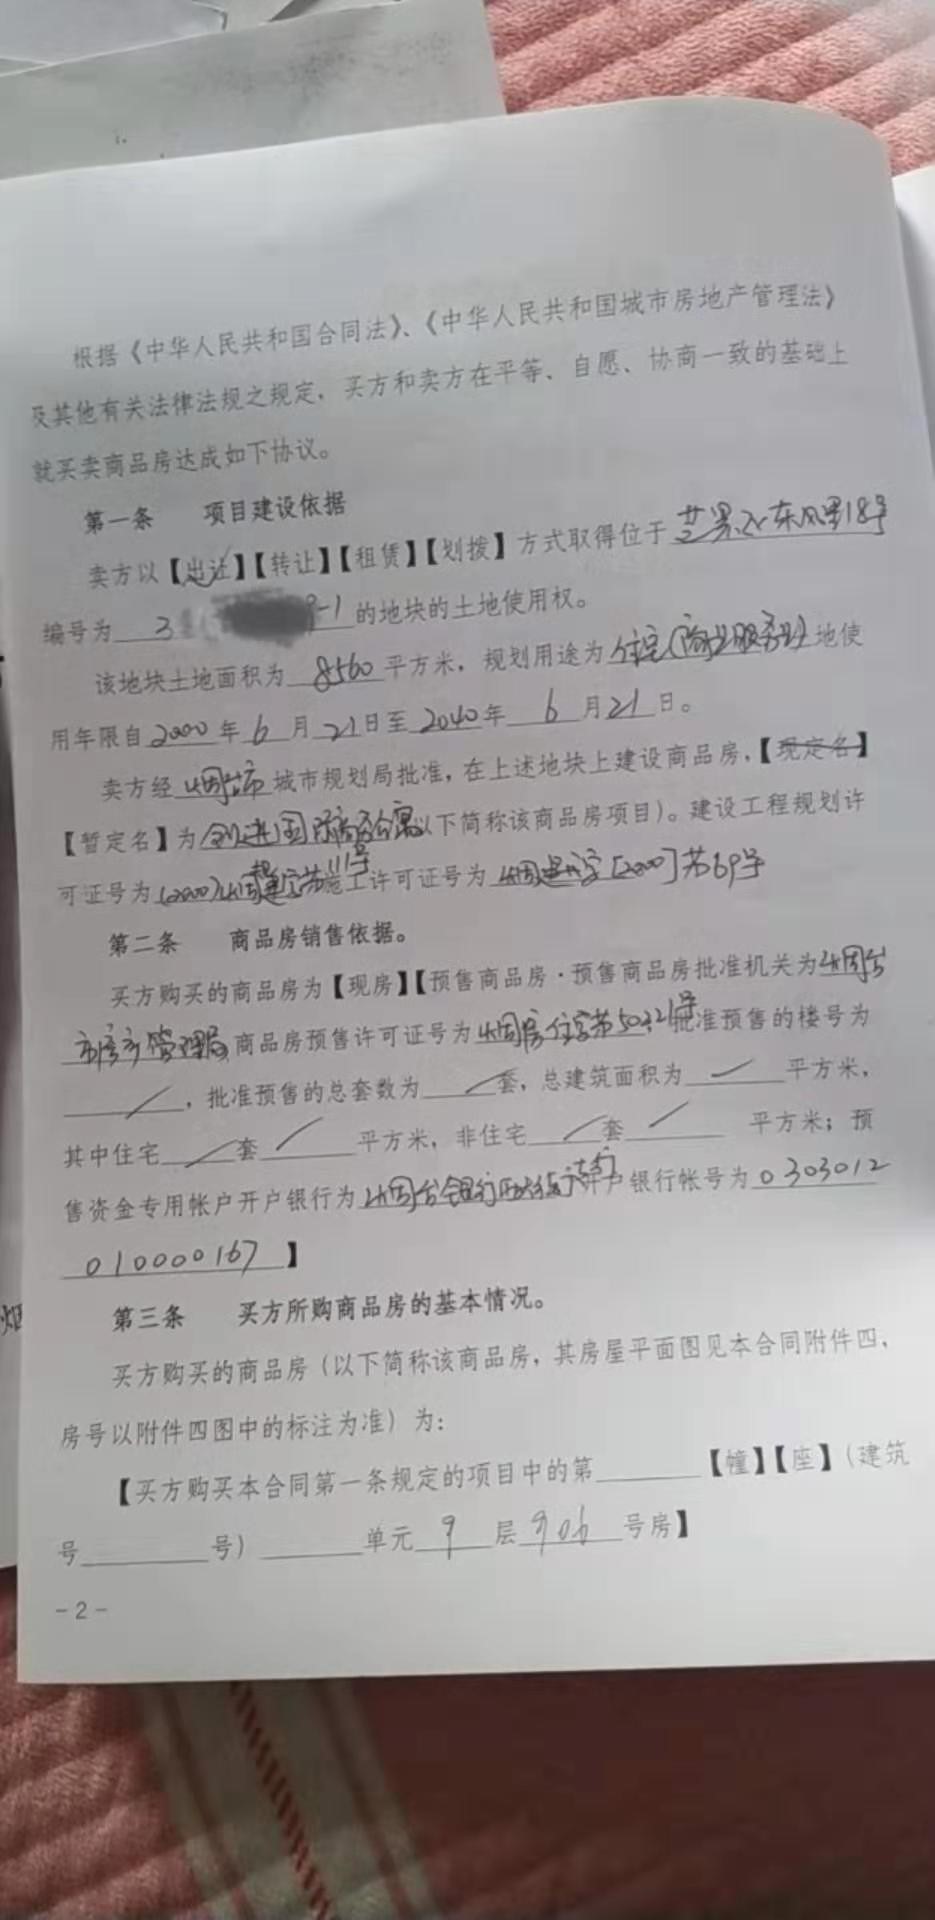 根据《中华人民共和国合同法》、《中华人民共和国城市房地产管理法》
及其他有关法律法规之规定，买方和卖方在平等、自愿、协商一致的基础上
就买卖商品房达成如下协议。
第一条 项目建设依据
卖方以【出让】【转让】【租赁】【划拨】方式取得位于芝罘区东风里18号
编号为 3 9-1 的地块的土地使用权。
该地块土地面积为 8560 平方米，规划用途为住宅(商业服务业)地使
用年限自2000年6月21日至2040年6月21日。
卖方经烟台市城市规划局批准，在上述地块上建设商品房，【现定名】
【暂定名】为 国际 公寓以下简称该商品房项目）。建设工程规划许
可证号为(2000)烟 建字第111号施工许可证号为烟建 字[2000]第69号
第二条 商品房销售依据。
买方购买的商品房为【现房】【预售商品房·预售商品房批准机关为烟台
市房产管理局商品房预售许可证号为烟房 字第 号批准预售的楼号为
／，批准预售的总套数为／套，总建筑面积为／平方米，
其中住宅／套／平方米，非住宅／套／平方米；预
售资金专用帐户开户银行为烟台 银行 开户银行帐号为0303012
010000167】
第三条 买方所购商品房的基本情况。
买方购买的商品房（以下简称该商品房，其房屋平面图见本合同附件四，
房号以附件四图中的标注为准）为：
【买方购买本合同第一条规定的项目中的第______【幢】【座】（建筑
号______号）______单元9层906号房】
-2-
烟